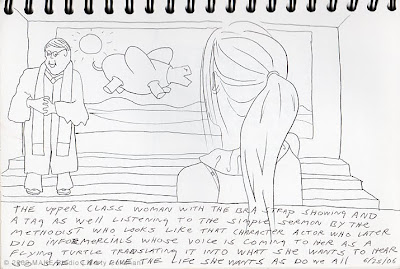 THE UPPER CLASS WOMAN WITH THE BRA STRAP SHOWING AND
A TAG AS WELL LISTENING TO THE SIMPLE SERMON BY THE
METHODIST WHO LOOKS LIKE THAT CHARACTER ACTOR WHO LATER
DID INFOMERCIALS WHOSE VOICE IS COMING TO HER AS A
FLYING TURTLE TRANSLATING IT INTO WHAT SHE WANTS TO HEAR
THE LIFE SHE WANTS AS DO WE ALL 6/25/06